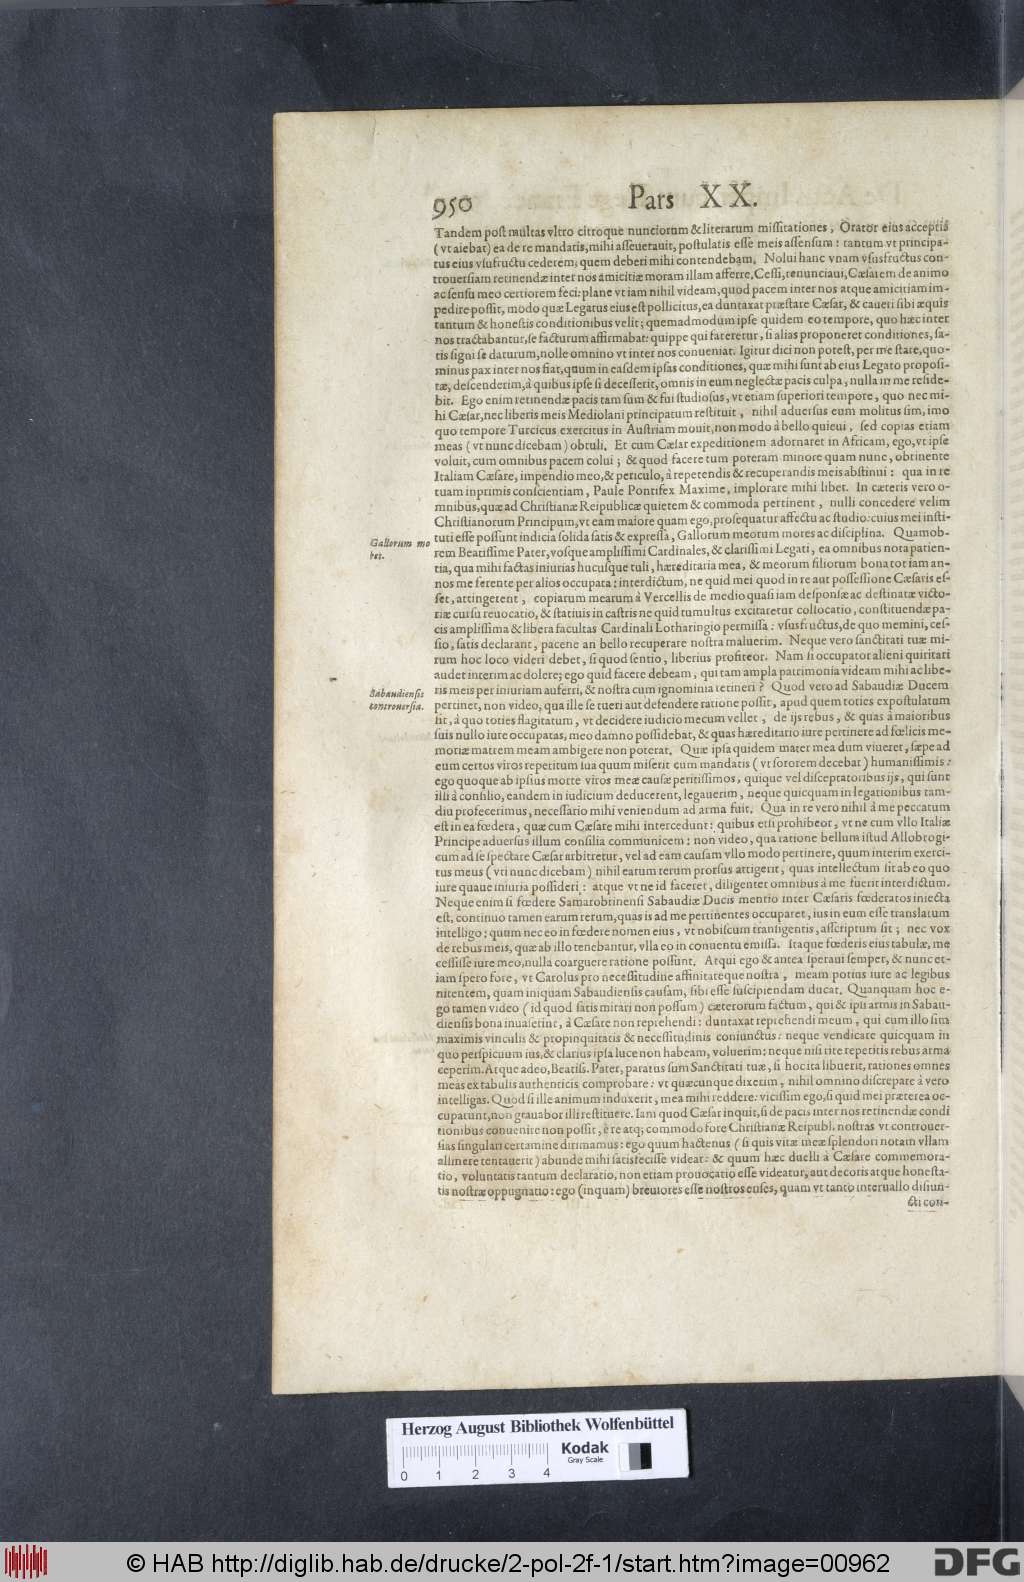 950 Pars XX.
Tandem post multas vltro citroque nunciorum & literarum missitationes, Orator eius acceptis
(vt aiebat) ea de re mandatis, mihi asseuerauit, postulatis esse meis assensum: tantum vt principa-
tus eius vsufructu cederem, quem deberi mihi contendebam. Nolui hanc vnam vsusfructus con-
trouersiam retinendæ inter nos amicitiæ moram illam afferre, Cessi, renunciaui, Cæsarem de animo
ac sensu meo certiorem feci: plane vt iam nihil videam, quod pacem inter nos atque amicitiam im-
pedire possit, modo quæ Legatus eius est pollicitus, ea duntaxat præstare Cæsar, & caueri sibi æquis
tantum & honestis conditionibus velit; quemadmodum ipse quidem eo tempore, quo hæc inter
nos tractabantur, se facturum affirmabat: quippe qui fateretur, si alias proponeret conditiones, sa-
tis signi se daturum, nolle omnino vt inter nos conueniat. Igitur dici non potest, per me stare, quo-
minus pax inter nos fiat, quum in easdem ipsas conditiones, quæ mihi sunt ab eius Legato proposi-
tæ, descenderim, à quibus ipse si decesserit, omnis in eum neglectæ pacis culpa, nulla in me reside-
bit. Ego enim retinendæ pacis tam sum & fui studiosus, vt etiam superiori tempore, quo nec mi-
hi Cæsar, nec liberis meis Mediolani principatum restituit, nihil aduersus eum molitus sim, imo
quo tempore Turcicus exercitus in Austriam mouit, non modo à bello quieui, sed copias etiam
meas (vt nunc dicebam) obtuli. Et cum Cæsar expeditionem adornaret in Africam, ego, vt ipse
voluit, cum omnibus pacem colui; & quod facere tum poteram minore quam nunc, obtinente
Italiam Cæsare, impendio meo, & periculo, à repetendis & recuperandis meis abstinui: qua in re
tuam inprimis conscientiam, Paule Pontifex Maxime, implorare mihi libet. In cæteris vero o-
mnibus, quæ ad Christianæ Reipublicæ quietem & commoda pertinent, nulli concedere velim
Christianorum Principum, vt eam maiore quam ego, prosequatur affectu ac studio: cuius mei insti-
Gallorum mo
res.
tuti esse possunt indicia solida satis & expressa, Gallorum meorum mores ac disciplina. Quamob-
rem Beatissime Pater, vosque amplissimi Cardinales, & clarissimi Legati, ea omnibus nota patien-
tia, qua mihi factas iniurias hucusque tuli, hæreditaria mea, & meorum filiorum bona tot iam an-
nos me ferente per alios occupata: interdictum, ne quid mei quod in re aut possessione Cæsaris es-
set, attingerent, copiarum mearum à Vercellis de medio quasi iam desponsæ ac destinatæ victo-
riæ cursu reuocatio, & statiuis in castris ne quid tumultus excitaretur collocatio, constituendæ pa-
cis amplissima & libera facultas Cardinali Lotharingio permissa: vsusfructus, de quo memini, ces-
sio, satis declarant, pacene an bello recuperare nostra maluerim. Neque vero sanctitati tuæ mi-
rum hoc loco videri debet, si quod sentio, liberius profiteor. Nam si occupator alieni quiritari
audet interim ac dolere; ego quid facere debeam, qui tam ampla patrimonia videam mihi ac libe-
Sabaudiensis
controuersia.
ris meis per iniuriam auferri, & nostra cum ignominia retineri? Quod vero ad Sabaudiæ Ducem
pertinet, non video, qua ille se tueri aut defendere ratione possit, apud quem toties expostulatum
sit, à quo toties flagitatum, vt decidere iudicio mecum vellet, de ijs rebus, & quas à maioribus
suis nullo iure occupatas, meo damno possidebat, & quas hæreditario iure pertinere ad fœlicis me-
moriæ matrem meam ambigere non poterat. Quæ ipsa quidem mater mea dum viueret, sæpe ad
eum certos viros repetitum sua quum miserit cum mandatis (vt sororem decebat) humanissimis:
ego quoque ab ipsius morte viros meæ causæ peritissimos, quique vel disceptatoribus ijs, qui sunt
illi à consilio, eandem in iudicium deducerent, legauerim, neque quicquam in legationibus tam-
diu profecerimus, necessario mihi veniendum ad arma fuit. Qua in re vero nihil à me peccatum
est in ea fœdera, quæ cum Cæsare mihi intercedunt: quibus etsi prohibeor, vt ne cum vllo Italiæ
Principe aduersus illum consilia communicem: non video, qua ratione bellum istud Allobrogi-
cum ad se spectare Cæsar arbitretur, vel ad eam causam vllo modo pertinere, quum interim exerci-
tus meus (vti nunc dicebam) nihil earum rerum prorsus attigerit, quas intellectum sit ab eo quo
iure quaue iniuria possideri: atque vt ne id faceret, diligenter omnibus à me fuerit interdictum.
Neque enim si fœdere Samarobrinensi Sabaudiæ Ducis mentio inter Cæsaris fœderatos iniecta
est, continuo tamen earum rerum, quas is ad me pertinentes occuparet, ius in eum esse translatum
intelligo: quum nec eo in fœdere nomen eius, vt nobiscum transigentis, asscriptum sit; nec vox
de rebus meis, quæ ab illo tenebantur, vlla eo in conuentu emissa. Itaque fœderis eius tabulæ, me
cessisse iure meo, nulla coarguere ratione possunt. Atqui ego & antea speraui semper, & nunc et-
iam spero fore, vt Carolus pro necessitudine affinitateque nostra, meam potius iure ac legibus
nitentem, quam iniquam Sabaudiensis causam, sibi esse suscipiendam ducat. Quanquam hoc e-
go tamen video (id quod satis mirari non possum) cæterorum factum, qui & ipsi armis in Sabau-
diensis bona inuaserint, à Cæsare non reprehendi: duntaxat reprehendi meum, qui cum illo sim
maximis vinculis & propinquitatis & necessitudinis coniunctus: neque vendicare quicquam in
quo perspicuum ius, & clarius ipsa luce non habeam, voluerim: neque nisi rite repetitis rebus arma
ceperim. Atque adeo, Beatiss. Pater, paratus sum Sanctitati tuæ, si hoc ita libuerit, rationes omnes
meas ex tabulis authenticis comprobare: vt quæcunque dixerim, nihil omnino discrepare à vero
intelligas. Quod si ille animum induxerit, mea mihi reddere: vicissim ego, si quid mei præterea oc-
cuparunt, non grauabor illi restituere. Iam quod Cæsar inquit, si de pacis inter nos retinendæ condi
tionibus conuenire non possit, è re atq; commodo fore Christianæ Reipubl. nostras vt controuer-
sias singulari certamine dirimamus: ego quum hactenus (si quis vitæ meæ splendori notam vllam
allinere tentauerit) abunde mihi satisfecisse videar: & quum hæc duelli à Cæsare commemora-
tio, voluntatis tantum declaratio, non etiam prouocatio esse videatur, aut decoris atque honesta-
tis nostræ oppugnatio: ego (inquam) breuiores esse nostros enses, quam vt tanto interuallo disiun-
cti con-
Herzog August Bibliothek Wolfenbüttel
0 1 2 3 4
Kodak
Gray Scale
© HAB http://diglib.hab.de/drucke/2-pol-2f-1/start.htm?image=00962
DFG